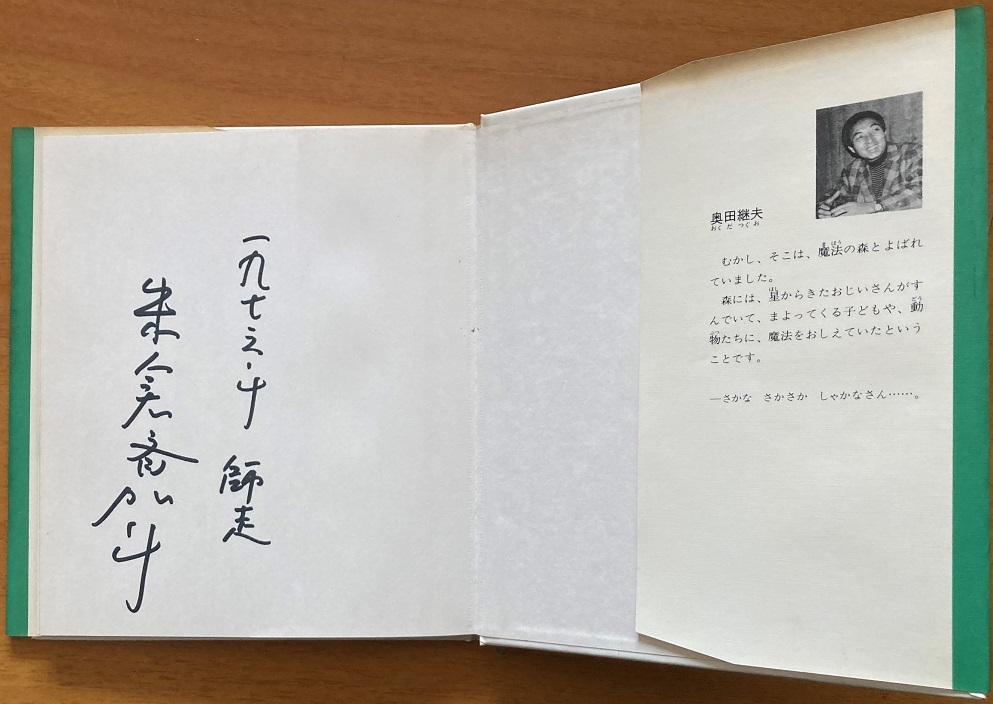 一九七三年 師走
米倉斉加年
奥田継夫
おくだつぐお
むかし、そこは、魔法の森とよばれ
ていました。
森には、星からきたおじいさんがす
んでいて、まよってくる子どもや、動
物たちに、魔法をおしえていたという
ことです。
―さかな　さかさか　しゃかなさん……。